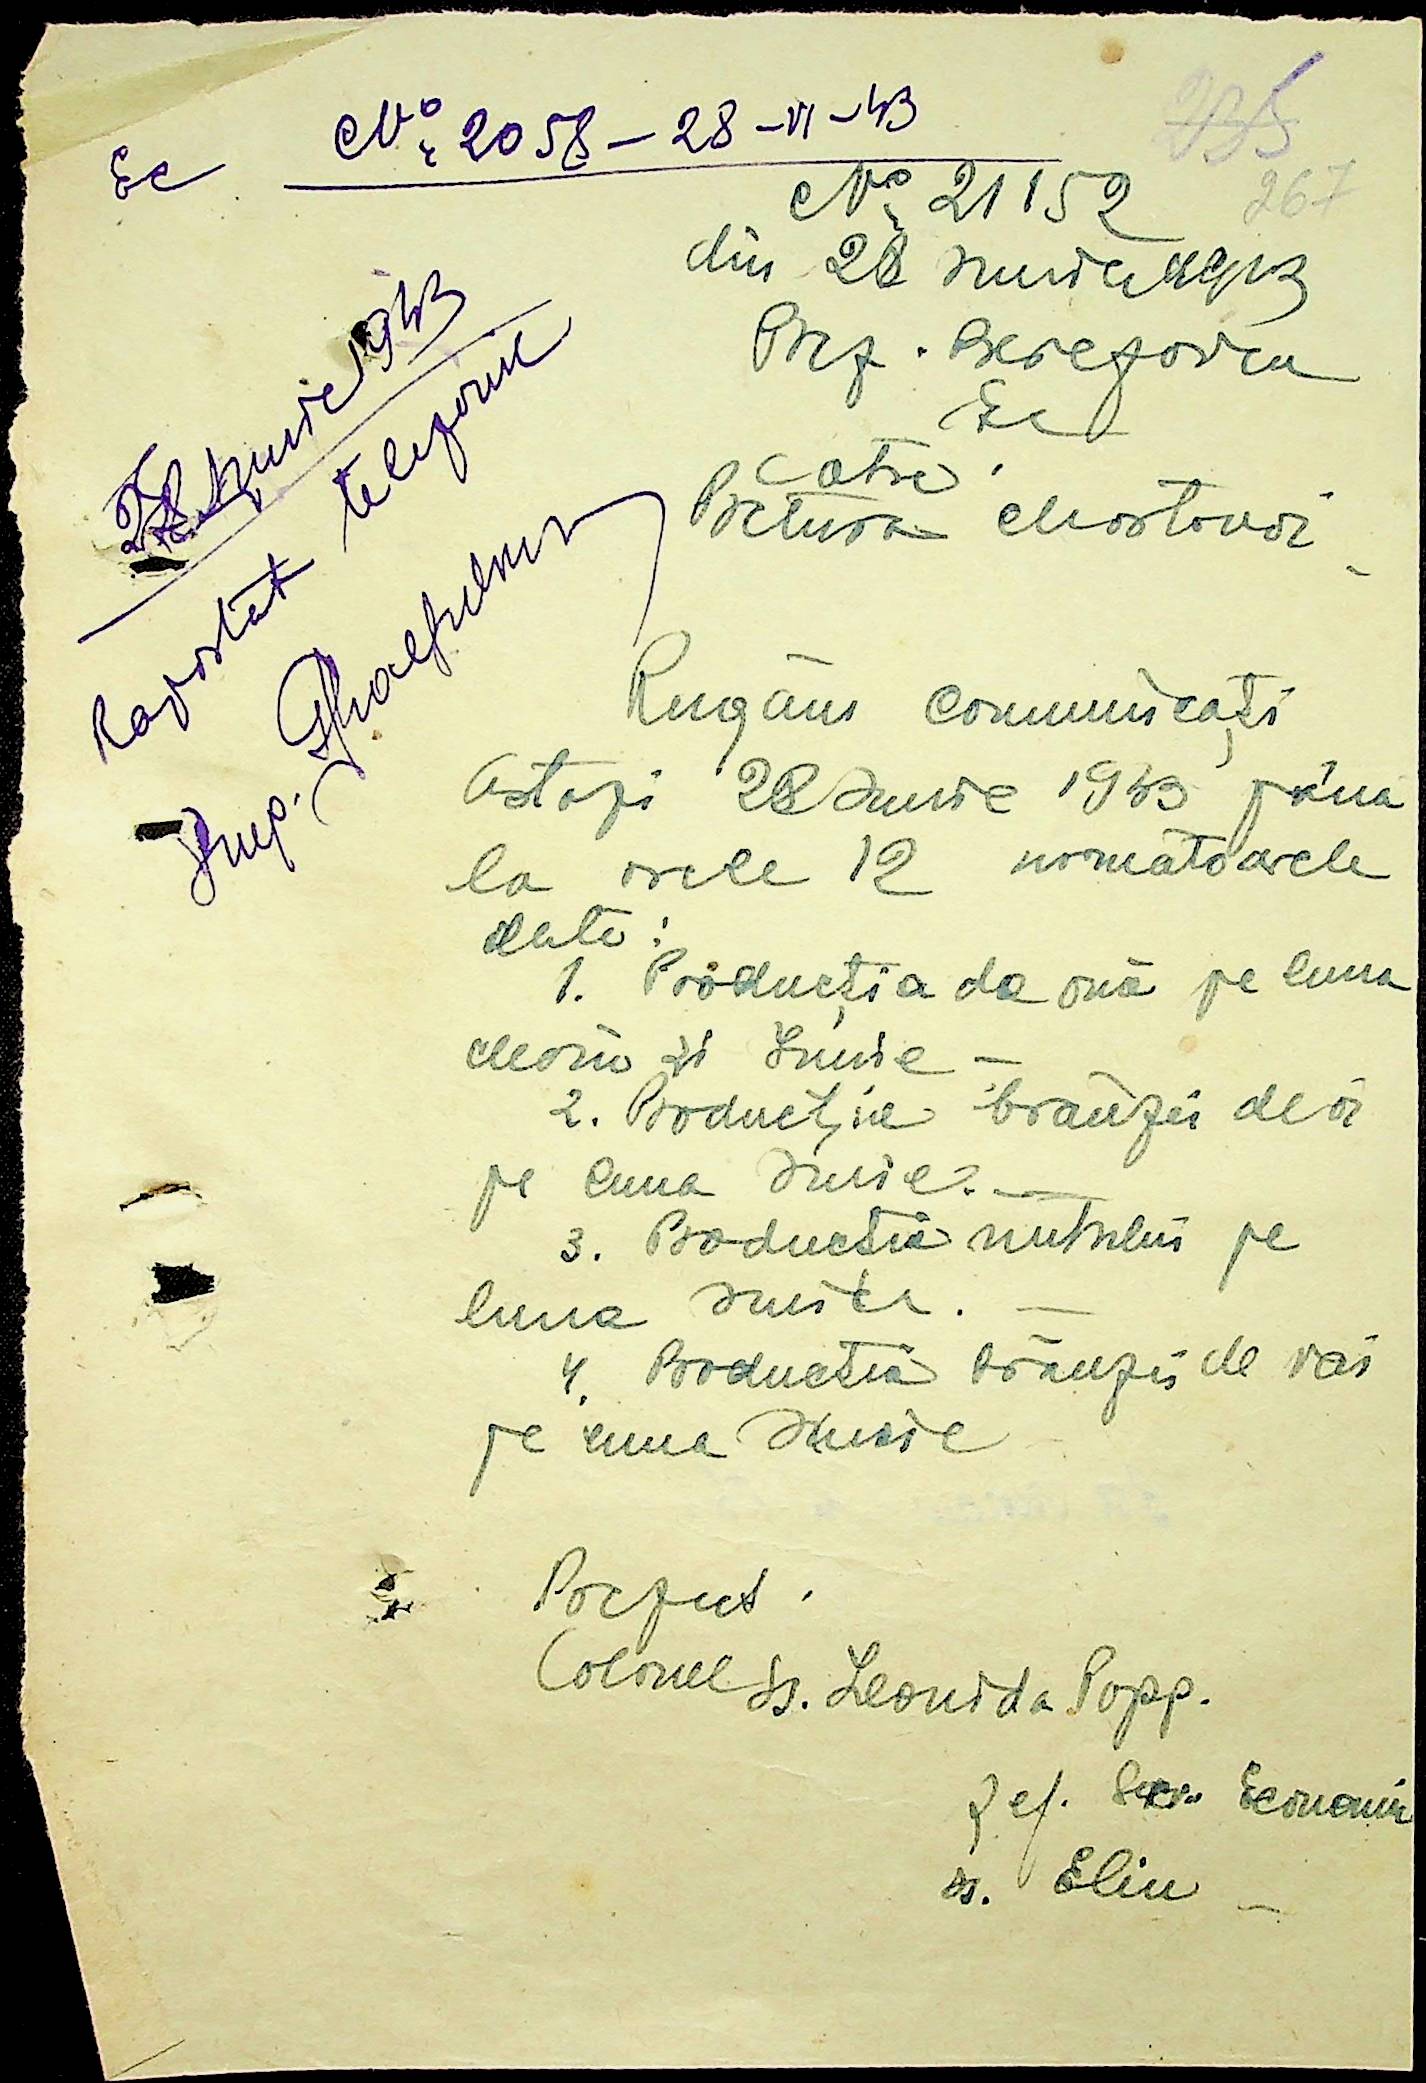 Ec No. 2058 – 28 – VI – 43
235
267
No. 21152
din 28 Iunie 1943
Pref. Berezovca
Ec
Catre
Pretura Mostovoi
28 Iunie 1943
Raportat telefonic
Rugăm comunicați
astazi 28 Iunie 1943 pâna
la orele 12 urmatoarele
date:
1. Producția de ouă pe luna
Maiu și Iunie –
2. Producția brânzei de oi
pe luna Iunie. –
3. Producția untului pe
luna Iunie. –
4. Producția brânzei de vaci
pe luna Iunie
Prefect.
Colonel ss. Leonida Popp.
Șef. Serv. Economic
ss. Elin –